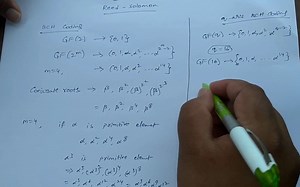 Reed - Solomon
BCH Coding
GF(2) → {0,1}
GF(2^m) → {0,1,α,α²...α^(2^m-2)}
m=4, → {0,1,α, ... α^14}
Conjugate roots → β, β², (β)^2², (β)^2³
β, β², β⁴, β⁸
m=4, if α is primitive element
α, α², α⁴, α⁸
α³ is primitive element
⇒ α³, (α³)², (α³)⁴, (α³)⁸
BCH Coding
GF(q) → {0,1,α,α²...α^(q-2)}
GF(16) → {0,1,α, ... α^14}